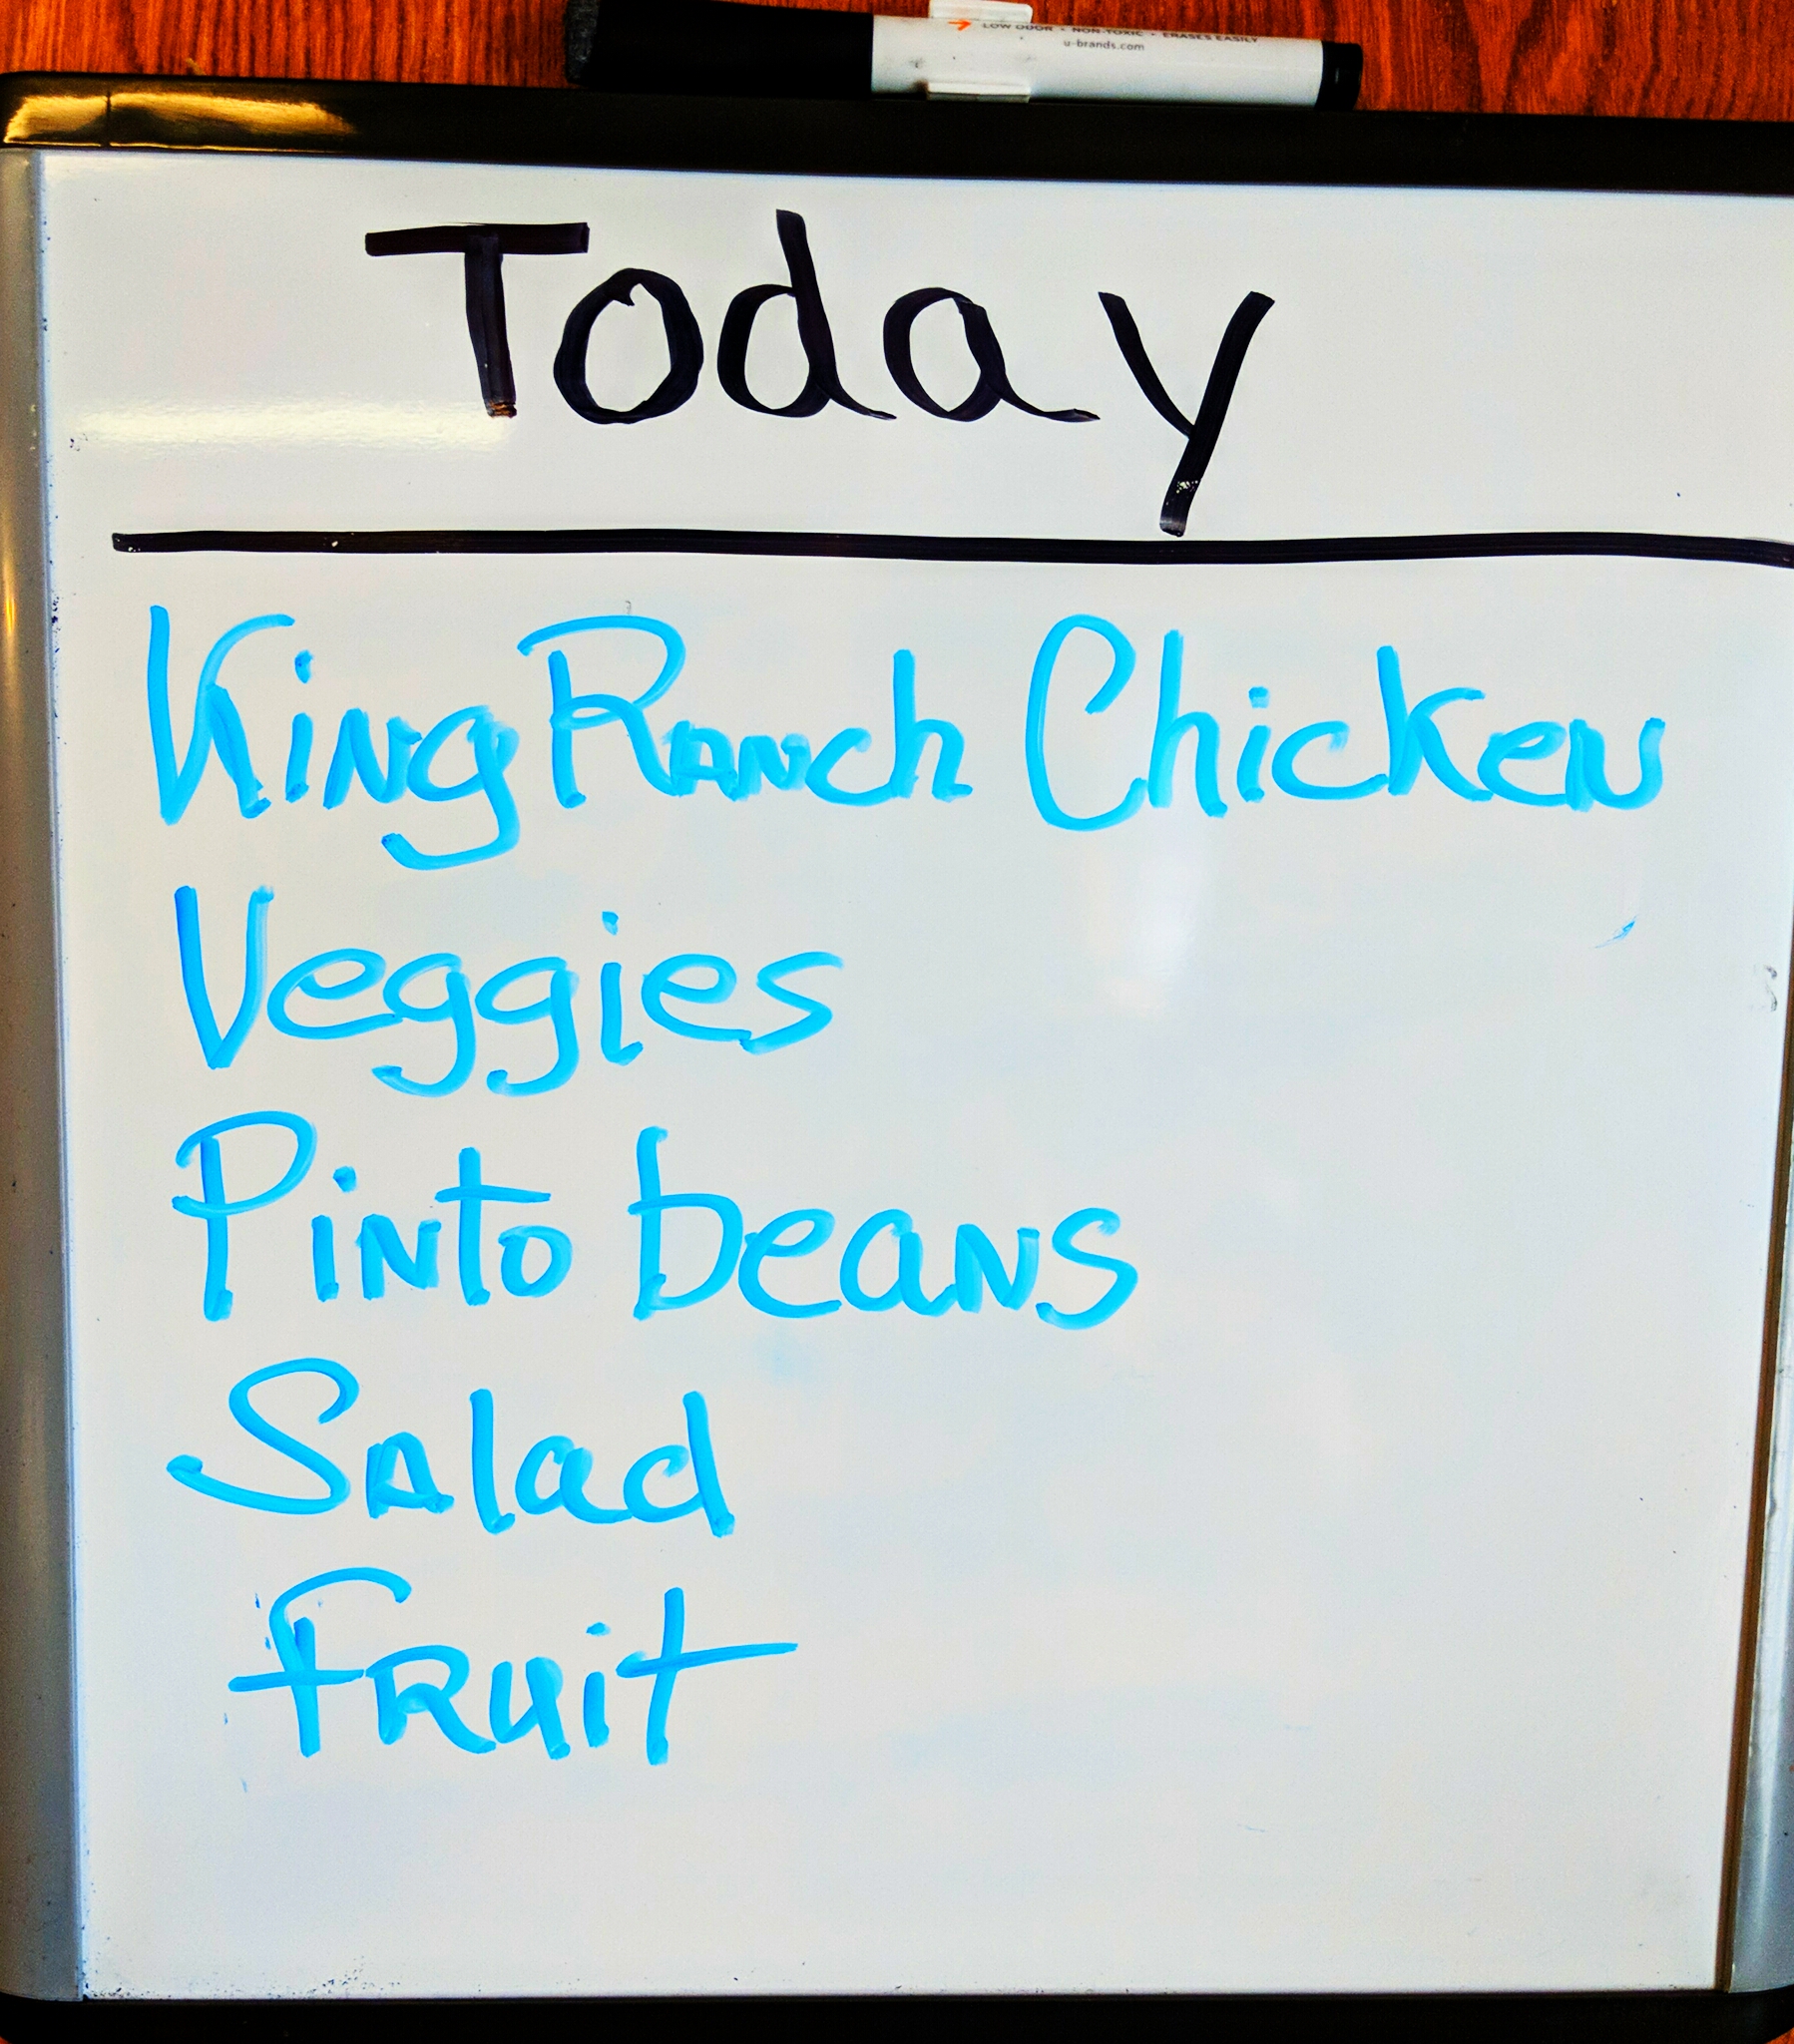 LOW ODOR • NON-TOXIC • ERASES EASILY
u-brands.com
Today
King Ranch Chicken
Veggies
Pinto beans
Salad
Fruit